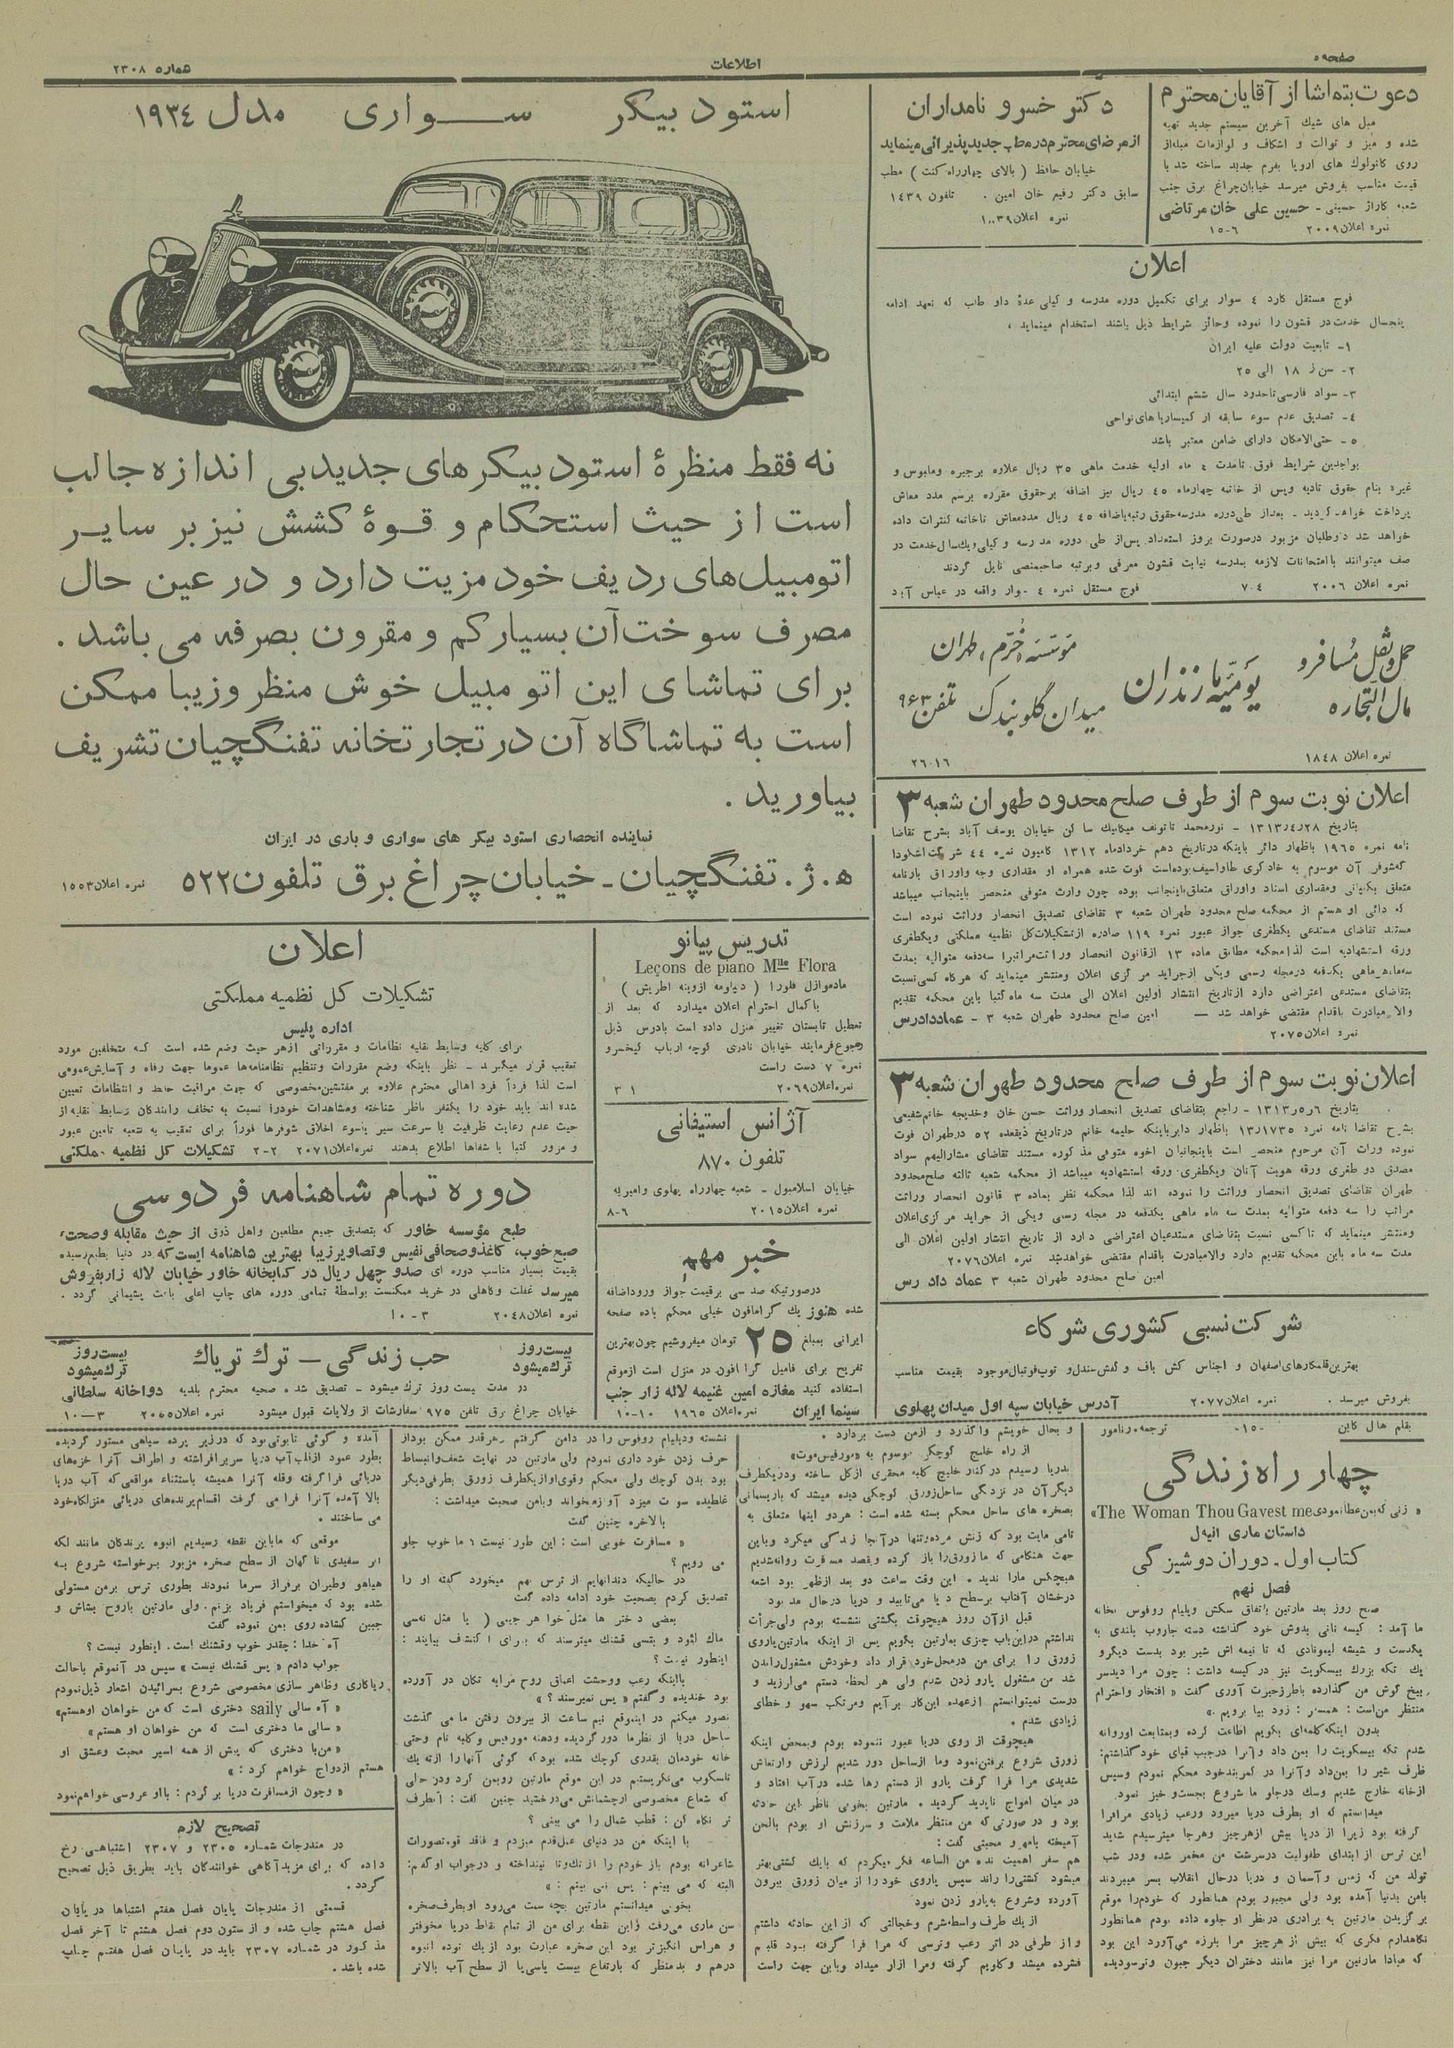 صفحه ۵
اطلاعات
شماره ۲۳۰۸
دعوت بتماشا از آقایان محترم
مبل های شیك آخرین سیستم جدید تهیه
شده و میز و توالت و اشکاف و لوازمات مبله از
روی کاتولوك های اروپا بفرم جدید ساخته شد با
قیمت مناسب بفروش میرسد خیابان چراغ برق جنب
شعبه کاراژ حسینی - حسین علی خان مرتاضی
نمره اعلان ۲۰۰۹ ۶-۱۵
دکتر خسرو نامداران
از مرضای محترم در مطب جدید پذیرائی مینماید
خیابان حافظ ( بالای چهارراه کنت ) مطب
سابق دکتر رفیع خان امین . تلفون ۱۴۳۹
نمره اعلان
استودبیکر سواری مدل ۱۹۳۴
نه فقط منظرهٔ استودبیکر های جدید بی اندازه جالب
است از حیث استحکام و قوهٔ کشش نیز بر سایر
اتومبیل های ردیف خود مزیت دارد و در عین حال
مصرف سوخت آن بسیار کم و مقرون بصرفه می باشد .
برای تماشای این اتومبیل خوش منظر و زیبا ممکن
است به تماشاگاه آن در تجارتخانه تفنگچیان تشریف
بیاورید .
نماینده انحصاری استودبیکر های سواری و باری در ایران
ه . ژ . تفنگچیان - خیابان چراغ برق تلفون ۵۲۲ نمره اعلان ۱۵۵۳
اعلان
فوج مستقل کارد ٤ سوار برای تکمیل دوره مدرسه و کیلی عدهٔ داو طلب که تعهد ادامه
پنجسال خدمت در قشون را نموده و حائز شرایط ذیل باشند استخدام مینماید ،
۱- تابعیت دولت علیه ایران
۲- سن از ۱۸ الی ۲۵
۳- سواد فارسی تا حدود سال ششم ابتدائی
٤- تصدیق عدم سوء سابقه از کمیساریا های نواحی
۵- حتی الامکان دارای ضامن معتبر باشد
بواجدین شرایط فوق تا مدت ٤ ماه اولیه خدمت ماهی ۳۵ ریال علاوه بر جیره و ملبوس و
غیره بنام حقوق تادیه و پس از خاتمه چهارماه ٤۵ ریال نیز اضافه بر حقوق مقرره برسم مدد معاش
پرداخت خواهد گردید - بعد از طی دوره مدرسه حقوق رتبه باضافه ٤۵ ریال مدد معاش تا خاتمه کنترات داده
خواهد شد داوطلبان مزبور در صورت بروز استعداد پس از طی دوره مدرسه و کیلی و یکسال خدمت در
صف میتوانند با امتحانات لازمه بمدرسه نیابت قشون معرفی و برتبه صاحبمنصبی نایل گردند
نمره اعلان ۲۰۰۶ ٤-۷ فوج مستقل نمره ٤ سوار واقعه در عباس آباد
حمل و نقل مسافر و مال التجاره
یومیه مازندران
موسسه خرم ، طهران
میدان گلوبندك تلفن ۹۶۳
نمره اعلان ۱۸٤۸ ۱۶-۲۶
اعلان نوبت سوم از طرف صلح محدود طهران شعبه ۳
بتاریخ ۱۳۱۳/۴/۲۸ - نورمحمد تاتونف میکانیك ساکن خیابان یوسف آباد بشرح تقاضا
نامه نمره ۱۹۶۵ باظهار دائر باینکه در تاریخ دهم خرداد ماه ۱۳۱۲ کامیون نمره ٤٤ شرکت اشکودا
متعلق یکنفر و مقداری اسناد و اوراق متعلق باینجانب بوده چون وارث متوفی منحصر باینجانب میباشد
که دائی او هستم از محکمه صلح محدود طهران شعبه ۳ تقاضای تصدیق انحصار وراثت نموده است
مستند تقاضای مستدعی یکطغری جواز عبور نمره ۱۱۹ صادره از تشکیلات کل نظمیه مملکتی و یکطغری
ورقه استشهادیه است لذا محکمه مطابق ماده ۱۳ از قانون انحصار وراثت مراتب را سه دفعه متوالیه بمدت
سه ماه ماهی یکدفعه در مجله رسمی و یکی از جراید مرکزی اعلان و منتشر مینماید که هرگاه کسی نسبت
بتقاضای مستدعی اعتراضی دارد از تاریخ انتشار اولین اعلان الی مدت سه ماه کتبا باین محکمه تقدیم
والا مبادرت باقدام مقتضی خواهد شد — امین صلح محدود طهران شعبه ۳ - عماد دادرس
نمره اعلان ۲۰۷۵
اعلان نوبت سوم از طرف صلح محدود طهران شعبه ۳
بتاریخ ۱۳۱۳/۵/۶ - راجع بتقاضای تصدیق انحصار وراثت حسن خان و خدیجه خانم شفیعی
بشرح تقاضا نامه نمره ۱۳/۱۷۳۵ باظهار دایر باینکه حلیمه خانم در تاریخ ذیقعده ۵۲ در طهران فوت
نموده وراث آن مرحوم منحصر است باینجانبان اخوه متوفی مذکوره مستند تقاضای مشارالیهم سواد
مصدق دو طغری ورقه هویت آنان و یکطغری ورقه استشهادیه میباشد از محکمه شعبه ثالثه صلح محدود
طهران تقاضای تصدیق انحصار وراثت را نموده اند لذا محکمه نظر بماده ۳ قانون انحصار وراثت
مراتب را سه دفعه متوالیه بمدت سه ماه ماهی یکدفعه در مجله رسمی و یکی از جراید مرکزی اعلان
و منتشر مینماید که تا کسی نسبت بتقاضای مستدعیان اعتراضی دارد از تاریخ انتشار اولین اعلان الی
مدت سه ماه باین محکمه تقدیم دارد والا مبادرت باقدام مقتضی خواهد شد نمره اعلان ۲۰۷۶
امین صلح محدود طهران شعبه ۳ عماد داد رس
شرکت نسبی کشوری شرکاء
بهترین قلمکارهای اصفهان و اجناس کش باف و کفش صندل و توپ فوتبال موجود بقیمت مناسب
بفروش میرسد . نمره اعلان ۲۰۷۷ آدرس خیابان سپه اول میدان پهلوی
تدریس پیانو
Leçons de piano Mlle Flora
مادموازل فلورا ( دیپلومه از وینه اطریش )
با کمال احترام اعلان میدارد که بعد از
تعطیل تابستان تغییر منزل داده است بآدرس ذیل
رجوع فرمایند خیابان نادری کوچه ارباب کیخسرو
نمره ۷ دست راست
نمره اعلان ۲۰۶۹ ۱-۳
آژانس استیفانی
تلفون ۸۷۰
خیابان اسلامبول - شعبه چهارراه پهلوی و امیریه
نمره اعلان ۲۰۱۵ ۶-۸
خبر مهم
در صورتیکه صد سی بر قیمت جواز ورود اضافه
شده هنوز یك گرامافون خیلی محکم با ده صفحه
ایرانی بمبلغ ۲۵ تومان میفروشیم چون بهترین
تفریح برای فامیل گرامافون در منزل است از موقع
استفاده کنید مغازه امین غنیمه لاله زار جنب
سینما ایران نمره اعلان ۱۹۶۵ ۱۰-۱۰
اعلان
تشکیلات کل نظمیه مملکتی
اداره پلیس
برای کلیه وسایط نقلیه نظامات و مقرراتی از هر حیث وضع شده است که متخلفین مورد
تعقیب قرار میگیرند - نظر باینکه وضع مقررات و تنظیم نظامنامه ها عموما جهت رفاه و آسایش عمومی
است لذا فرداً فرد اهالی محترم علاوه بر مفتشین مخصوصی که جهت مراقبت حفظ و انتظامات تعیین
شده اند باید خود را یکنفر ناظر شناخته و مشاهدات خود را نسبت به تخلف رانندگان وسایط نقلیه از
حیث عدم رعایت ظرفیت یا سرعت سیر یا سوء اخلاق شوفرها فوراً برای تعقیب به شعبه تامین عبور
و مرور کتبا یا شفاها اطلاع بدهند نمره اعلان ۲۰۷۱ ۲-۲ تشکیلات کل نظمیه مملکتی
دوره تمام شاهنامه فردوسی
طبع مؤسسه خاور که بتصدیق جمیع مطلعین و اهل ذوق از حیث مقابله و صحت،
طبع خوب، کاغذ و صحافی نفیس و تصاویر زیبا بهترین شاهنامه ایست که در دنیا بطبع رسیده
بقیمت بسیار مناسب دوره ای صد و چهل ریال در کتابخانه خاور خیابان لاله زار بفروش
میرسد غفلت و کاهلی در خرید ممکنست بواسطهٔ تمامی دوره های چاپ اعلی باعث پشیمانی گردد .
نمره اعلان ۲۰٤۸ ۳-۱۰
بیست روز ترك میشود
حب زندگی - ترك تریاك
بیست روز ترك میشود
در مدت بیست روز ترك میشود - تصدیق شده صحیه محترم بلدیه دواخانه سلطانی
خیابان چراغ برق تلفن ۹۷۵ سفارشات از ولایات قبول میشود نمره اعلان ۲۰۶۵ ۳-۱۰
بقلم هال کاین -۱۵- ترجمه رنامور
چهار راه زندگی
« زنی که بمن عطا نمودی The Woman Thou Gavest me»
داستان ماری انیل
کتاب اول - دوران دوشیزگی
فصل نهم
صبح روز بعد مارتین باتفاق سگش ویلیام روفوس بخانه
ما آمد : کیسه نانی بدوش خود گذاشته دسته جاروب بلندی به
یکدست و شیشه لیمونادی که تا نیمه اش شیر بود بدست دیگر و
یك تکه بزرگ بیسکویت نیز در کیسه داشت : چون مرا دید سر
بیخ گوش من گذارده با طرز حیرت آوری گفت « افتخار و احترام
منتظر من است : همسفر : زود بیا برویم .»
بدون اینکه کلمه ای بگویم اطاعت کرده و بمتابعت او روانه
شدم تکه بیسکویت را بمن داد و آنرا در جیب قبای خود گذاشتم :
ظرف شیر را بمن داد و آنرا در کمربند خود محکم نمودم و سپس
از خانه خارج شدیم و سگ در جلو ما شروع بجست و خیز نمود
میدانستم که او بطرف دریا میرود و رعب زیادی مرا فرا
گرفته بود زیرا از دریا بیش از هر چیز و هر جا میترسیدم شاید
این ترس از ابتدای طفولیت در سرشت من مخمر شده و در شب
تولد من که زمین و آسمان و دریا در حال انقلاب بسر میبردند
بامن بدنیا آمده بود ولی مجبور بودم همانطور که خودم را موقع
برگزیدن مارتین به برادری در نظر او جلوه داده بودم همانطور
نگاهدارم فکری که بیش از هر چیز مرا بلرزه می آورد این بود
که مبادا مارتین مرا نیز مانند دختران دیگر جبون و ترسو دیده
و بحال خویشم واگذارد و از من دست بردارد .
از راه خلیج کوچکی موسوم به «مورفیس موت»
بدریا رسیدم در کنار خلیج کلبه محقری از گل ساخته و در یکطرف
دیگر آن در نزدیکی ساحل زورق کوچکی دیده میشد که با ریسمانی
بصخره های ساحل محکم بسته شده است : هر دو اینها متعلق به
جهت هنگامی که ما زورق را باز کرده و بقصد مسافرت روانه شدیم
هیچکس مارا ندید . این وقت ساعت دو بعد از ظهر بود اشعه
درخشان آفتاب بر سطح دریا می تابید و دریا در حال مد بود
قبل از آن روز هیچوقت بکشتی ننشسته بودم ولی جرأت
نداشتم در این باب چیزی بمارتین بگویم پس از اینکه مارتین پاروی
زورق را برای من در محل خود قرار داد و خودش مشغول راندن
شد من مشغول پارو زدن شدم ولی هر لحظه دستم می لرزید و
درست نمیتوانستم از عهده این کار بر آیم و مرتکب سهو و خطای
زیادی شدم .
هیچوقت از روی دریا عبور ننموده بودم و بمحض اینکه
زورق شروع برفتن نمود و ما از ساحل دور شدیم لرزش و ارتعاش
شدیدی مرا فرا گرفت پارو از دستم رها شده در آب افتاد و
در میان امواج ناپدید گردید . مارتین بخوبی ناظر این حادثه
بود و در صورتی که من منتظر ملامت و سرزنش او بودم بالحن
آمیخته بامهر و محبتی گفت :
هم سفر اهمیت نده من الساعه فکر میکردم که با یك کشتی بهتر
میشود کشتی را راند سپس پاروی خود را از میان زورق بیرون
آورده و شروع به پارو زدن نمود
از یك طرف واسطه شرم و خجالتی که از این حادثه داشتم
و از طرفی در اثر رعب و ترسی که مرا فرا گرفته بود قلبم
فشرده میشد و گلویم گرفته و مرا آزار میداد و باین جهت راست
نشسته و ویلیام روفوس را در دامن گرفتم و هر قدر ممکن بود از
حرف زدن خود داری نمودم ولی مارتین در نهایت شعف و انبساط
بود بدن کوچك ولی محکم و قوی او از یکطرف زورق بطرفی دیگر
غلطیده سوت میزد آواز میخواند و بامن صحبت میداشت :
بالاخره چنین گفت
« مسافرت خوبی است : این طور نیست ؟ ما خوب جلو
می رویم ؟
در حالیکه دندانهایم از ترس بهم میخورد گفته او را
تصدیق کردم بصحبت خود ادامه داده گفت
اینطور نیست ؟
با اینکه رعب و وحشت اعماق روح مرا به تکان در آورده
بود خندیده و گفتم « پس نمیرسند ؟ »
تصور میکنم در اینموقع نیم ساعت از بیرون رفتن ما می گذشت
ساحل دریا از نظرها دور گردیده و دهنه مورفیس و کلبه تام و حتی
خانه خودمان بقدری کوچك شده بود که گوئی آنها را از ته یك
تلسکوپ می نگریستم در این موقع مارتین رو بمن کرد و در حالی
که شعاع مخصوصی از چشمانش می درخشید چنین گفت : آنطرف
تر نگاه کن : قطب شمال را می بینی ؟
شاعرانه بودم باز خودم را از تك و تا نینداخته و در جواب او گفتم :
البته که می بینم : پس نمی بینم : »
بخوبی میدانستم مارتین بچه سمت می رود او بطرف صخره
سن ماری می رفت و این نقطه برای من از تمام نقاط دریا مخوفتر
و هراس انگیزتر بود این صخره عبارت بود از یك توده انبوه
درهم و بد منظر که بارتفاع بیست یا سی پا از سطح آب بالاتر
آمده و گوئی تابوتی بود که در زیر پرده سیاهی مستور گردیده
بطور عمود از قلب آب دریا سر بر افراشته و اطراف آنرا خزه های
دریائی فرا گرفته و قله آنرا همیشه باستثناء مواقعی که آب دریا
بالا آمده آنرا فرا می گرفت اقسام پرنده های دریائی منزلگاه خود
می ساختند .
موقعی که ما باین نقطه رسیدیم انبوه پرندگان مانند لکه
ابر سفیدی ناگهان از سطح صخره مزبور برخواسته شروع به
هیاهو و طیران بر فراز سر ما نمودند بطوری ترس بر من مستولی
شده بود که میخواستم فریاد بزنم . ولی مارتین با روح بشاش و
جبین گشاده روی بمن نموده گفت
آه خدا : چقدر خوب و قشنك است . اینطور نیست ؟
جواب دادم « پس قشنك نیست » سپس در آنموقع با حالت
ریاکاری و ظاهر سازی مخصوصی شروع بسرائیدن اشعار ذیل نمودم
« آه سالی saily دختری است که من خواهان او هستم »
« سالی ما دختری است که من خواهان او هستم »
« من با دختری که بیش از همه اسیر محبت و عشق او
هستم ازدواج خواهم کرد : »
« و چون از مسافرت دریا بر گردم : با او عروسی خواهم نمود
تصحیح لازم
در مندرجات شماره ۲۳۰۵ و ۲۳۰۷ اشتباهی رخ
داده که برای مزید آگاهی خوانندگان باید بطریق ذیل تصحیح
گردد .
قسمتی از مندرجات پایان فصل هفتم اشتباها در پایان
فصل هشتم چاپ شده و از ستون دوم فصل هشتم تا آخر فصل
مذکور در شماره ۲۳۰۷ باید در پایان فصل هفتم چاپ
شده باشد .